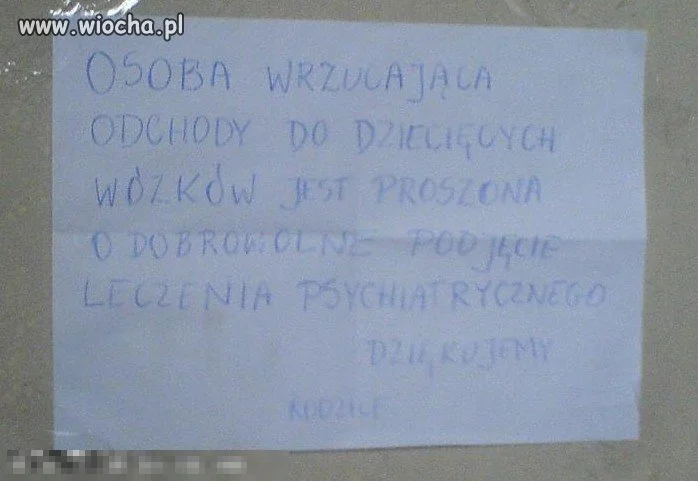 www.wiocha.pl
OSOBA WRZUCAJĄCA
ODCHODY DO DZIECIĘCYCH
WÓZKÓW JEST PROSZONA
O DOBROWOLNE PODJĘCIE
LECZENIA PSYCHIATRYCZNEGO
DZIĘKUJEMY
RODZICE